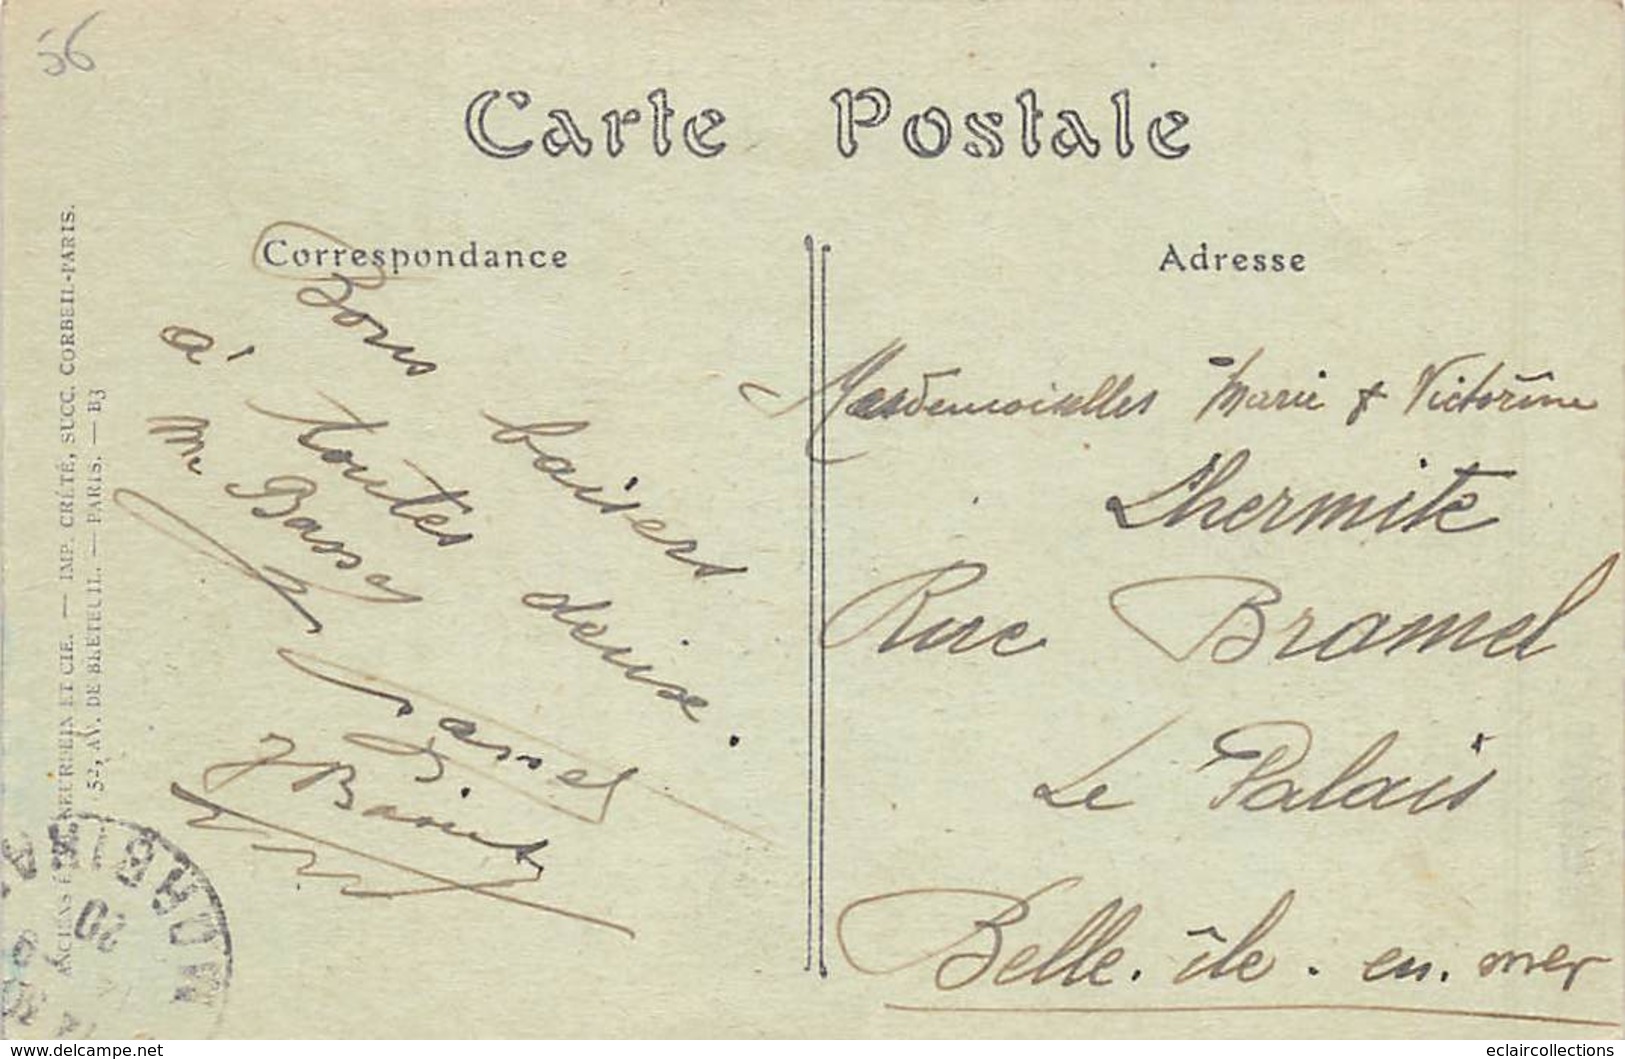 56
Carte Postale
Correspondance
Adresse
Bons baisers
à toutes deux.
Mlle Marie
Mesdemoiselles Marie & Victorine
Lhermite
Rue Bramel
Le Palais
Belle-île-en-mer
ANCIENS ÉT. NEURDEIN ET CIE. — IMP. CRÉTÉ, SUCC. CORBEIL-PARIS.
52, AV. DE BRETEUIL. — PARIS. — B3
MORBI
20
www.delcampe.net
eclaircollections